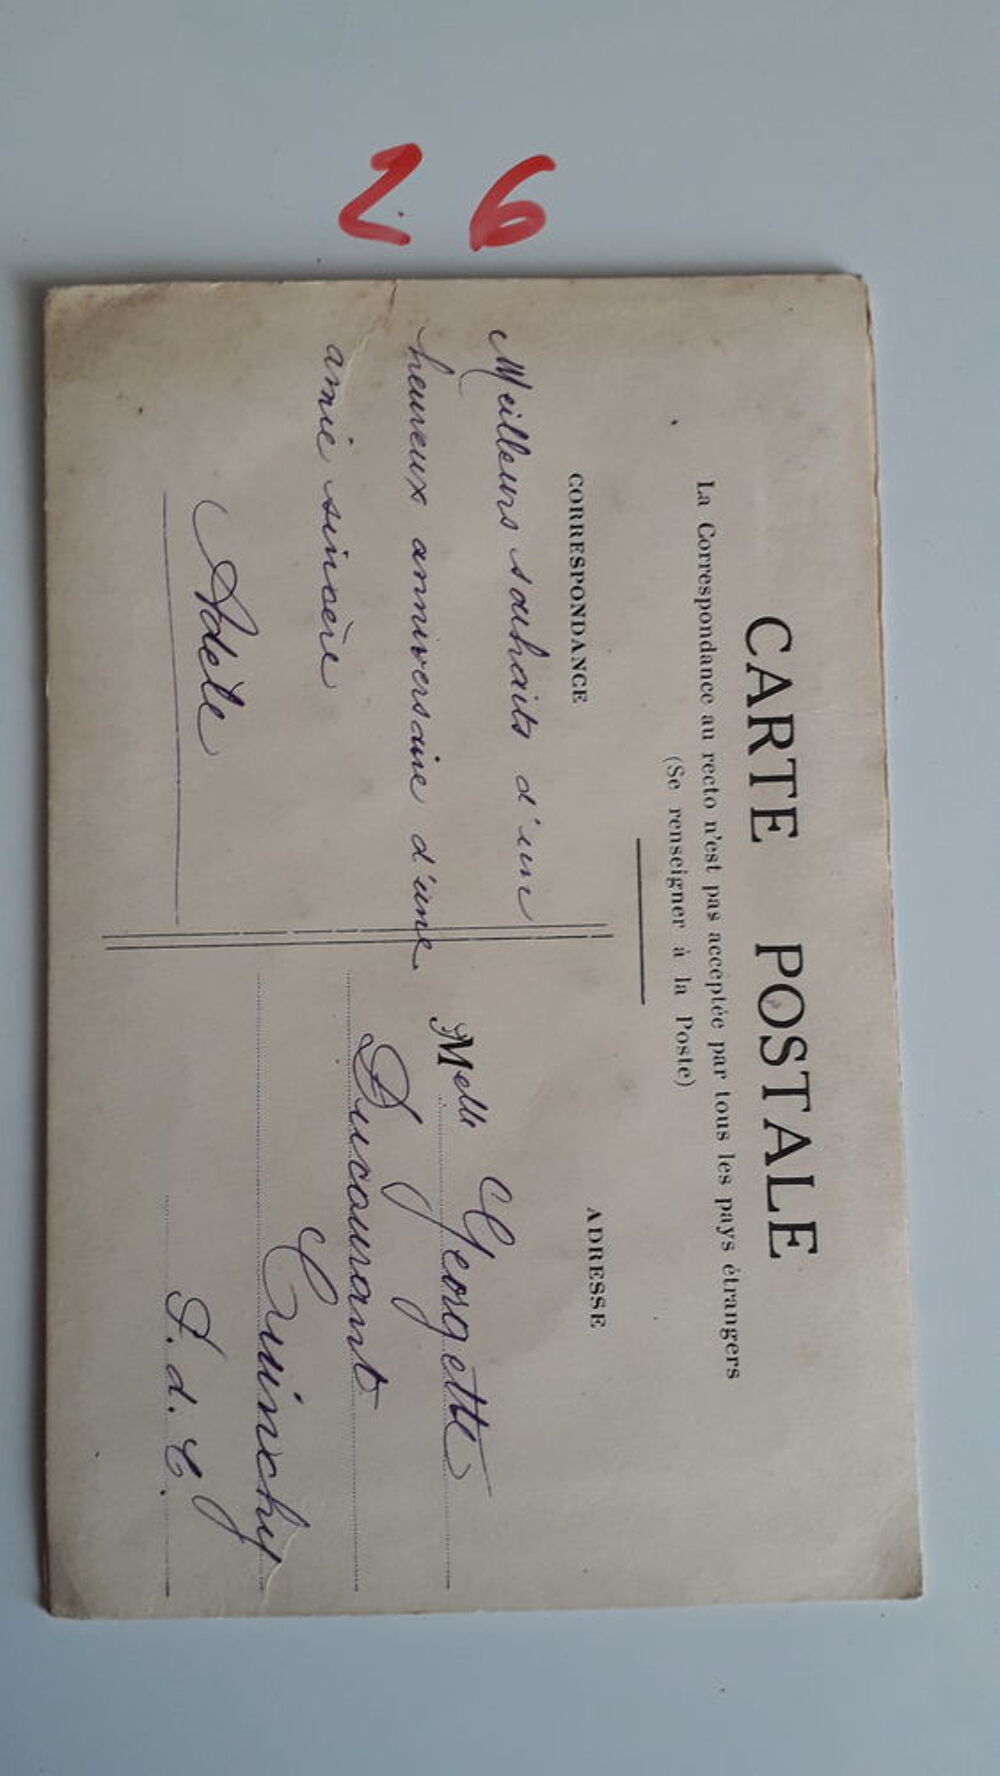 26
CARTE POSTALE
La Correspondance au recto n'est pas acceptée par tous les pays étrangers
(Se renseigner à la Poste)
CORRESPONDANCE
Meilleurs souhaits d'un
heureux anniversaire d'une
amie sincère
Adèle
ADRESSE
Melle Georgette
Ducourant
Cuinchy
P. d. C.